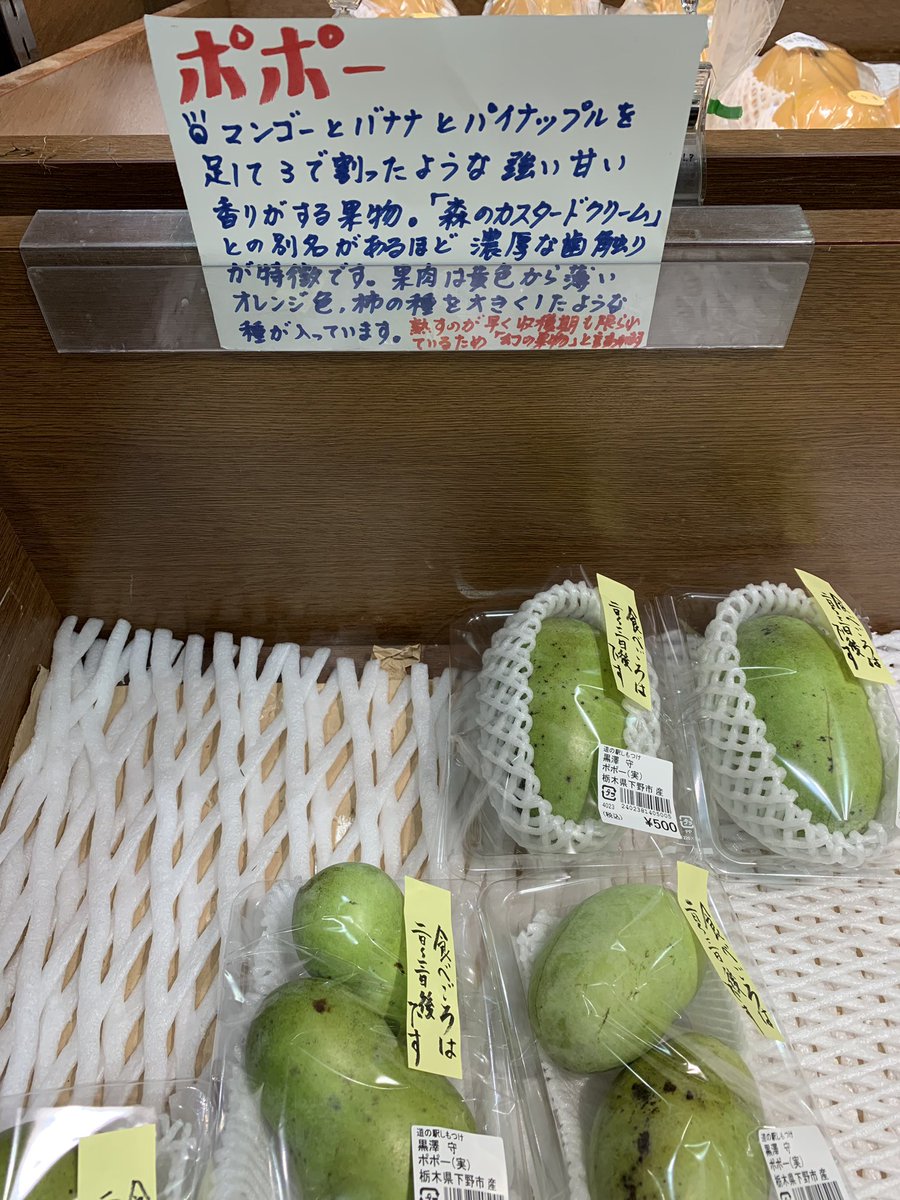 ポポー
マンゴーとバナナとパイナップルを
足して3で割ったような強い甘い
香りがする果物。「森のカスタードクリーム」
との別名があるほど濃厚な歯触り
が特徴です。果肉は黄色から薄い
オレンジ色,柿の種を大きくしたような
種が入っています。
熟すのが早く収穫期も限られ
ているため「幻の果物」と
食べごろは
二日〜三日後
です
食べごろは
二日〜三日後
です
道の駅しもつけ
黒澤 守
ポポー(実)
栃木県下野市 産
4023
2402381405005
(税込)
¥500
食べごろは
二日〜三日後
です
食べごろは
二日〜三日後
です
道の駅しもつけ
黒澤 守
ポポー(実)
栃木県下野市 産
道の駅しもつけ
黒澤 守
ポポー(実)
栃木県下野市 産